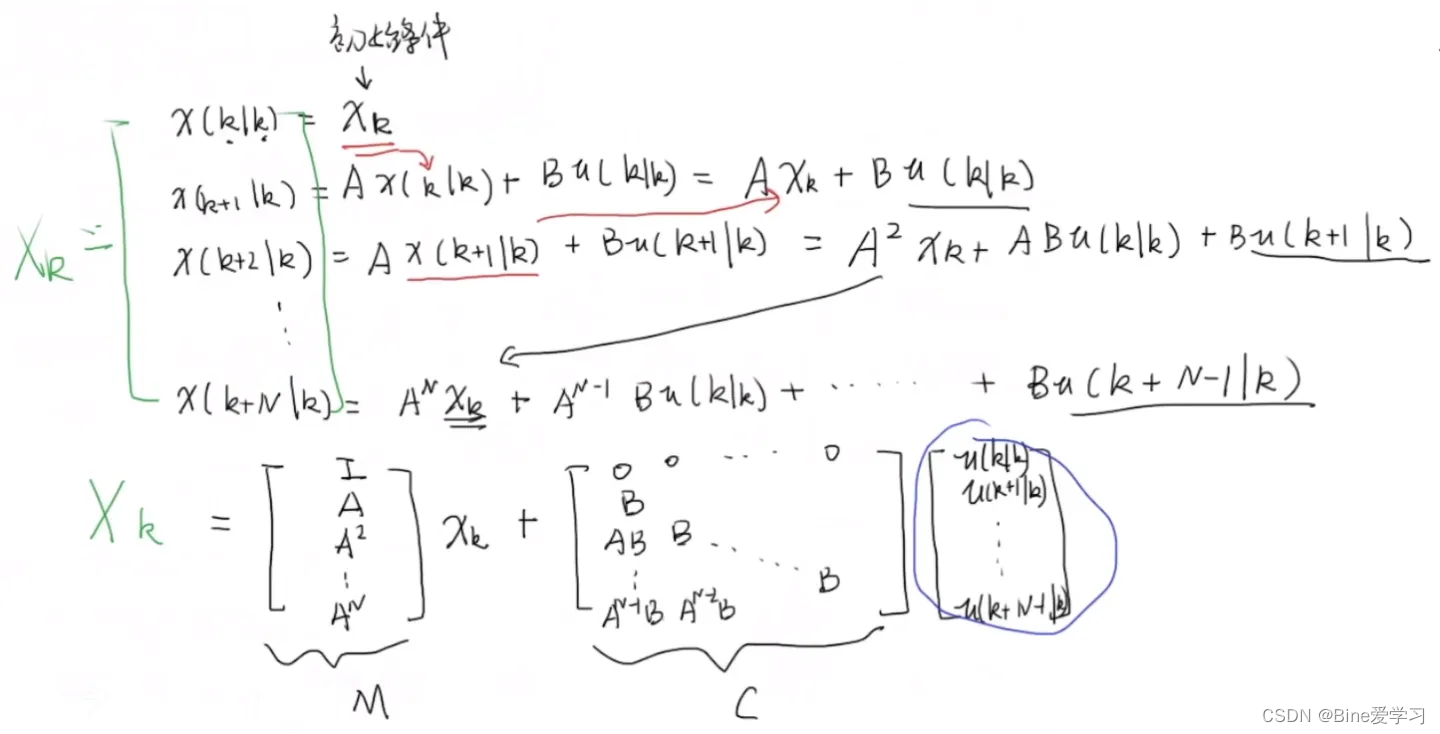 初始条件
↓
x(k|k) = x_k
x(k+1|k) = A x(k|k) + B u(k|k) = A x_k + B u(k|k)
X_k = x(k+2|k) = A x(k+1|k) + B u(k+1|k) = A² x_k + A B u(k|k) + B u(k+1|k)
⋮
x(k+N|k) = A^N x_k + A^{N-1} B u(k|k) + ······ + B u(k+N-1|k)
X_k = [ I A A² ⋮ A^N ] x_k + [ 0 0 ··· 0 B AB B ··· B ⋮ A^{N-1}B A^{N-2}B ] [ u(k|k) u(k+1|k) ⋮ u(k+N-1|k) ]
M C
CSDN @Bine爱学习